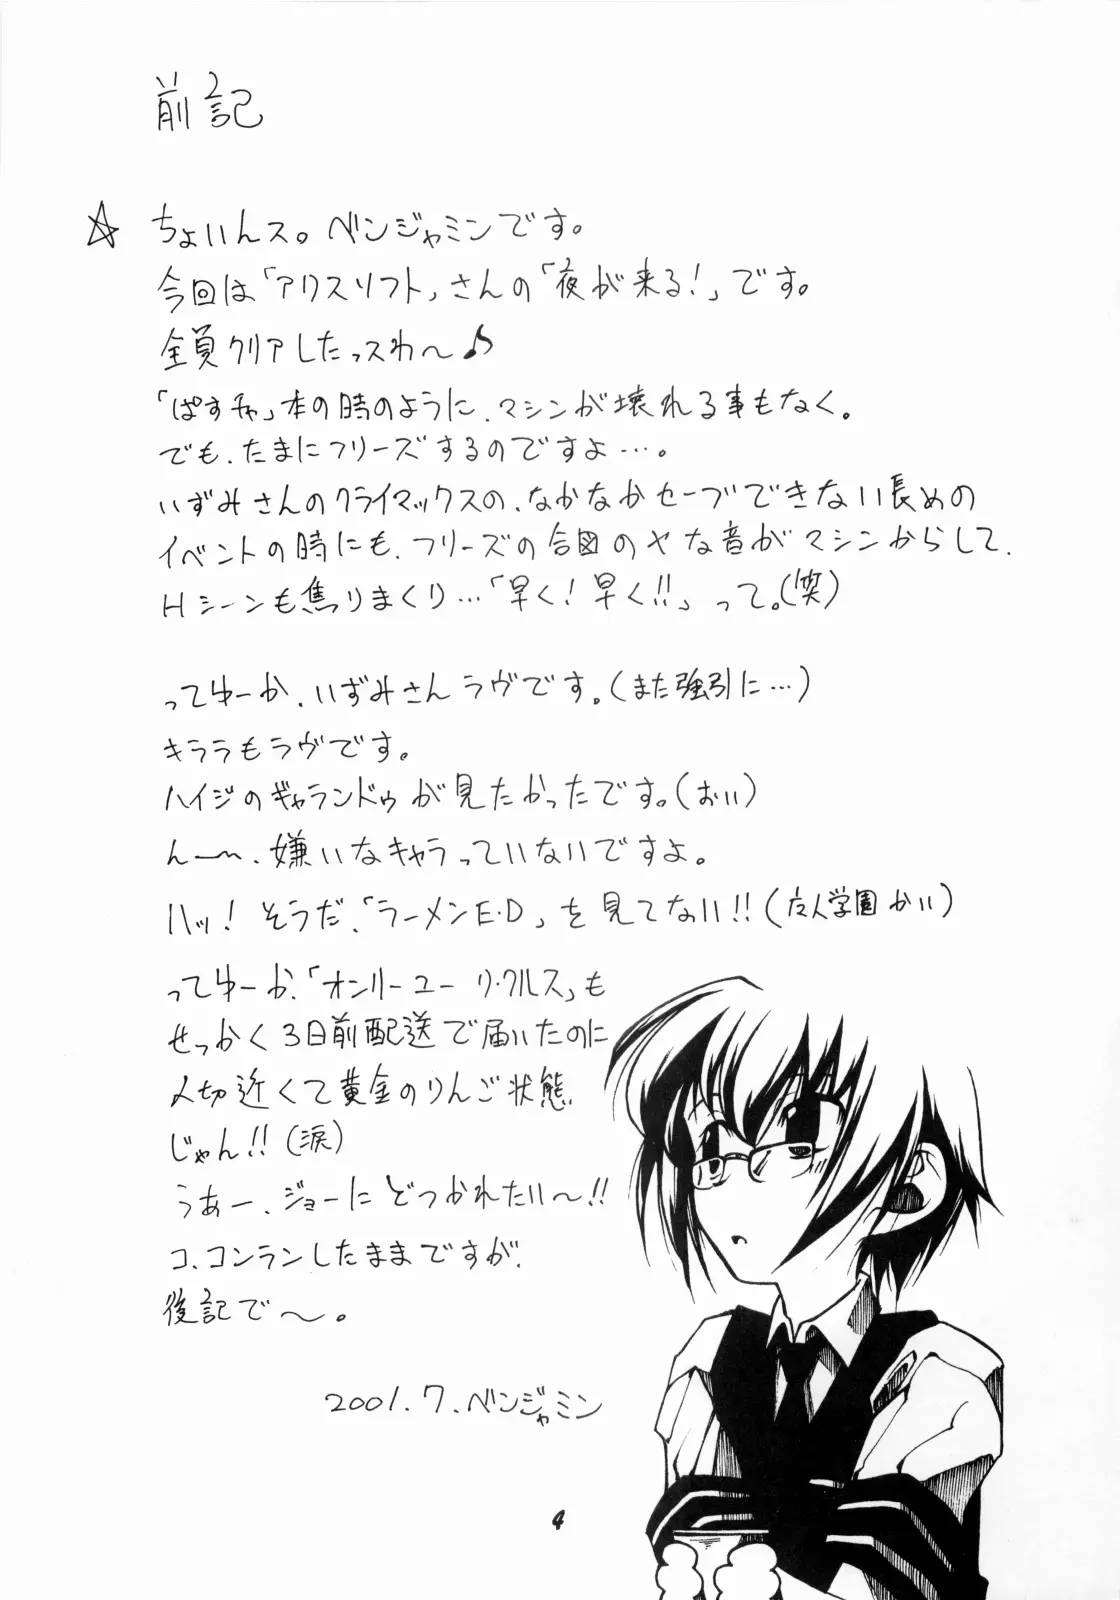 前記
☆ ちょいんス。ベンジャミンです。
今回は「アリスソフト」さんの「夜が来る!」です。
全員クリアしたっスわ〜♪
「ぱすチャ」本の時のように、マシンが壊れる事もなく。
でも、たまにフリーズするのですよ…。
いずみさんのクライマックスの、なかなかセーブできない長めの
イベントの時にも、フリーズの合図のヤな音がマシンからして、
Hシーンも焦りまくり…「早く!早く!!」って。(笑)
ってゆーか、いずみさんラヴです。(また強引に…)
キララもラヴです。
ハイジのギャランドゥが見たかったです。(おい)
んー〜、嫌いなキャラっていないですよ。
ハッ! そうだ、「ラーメンE・D」を見てない!!(左人学園かい)
ってゆーか、「オンリーユー リ・クルス」も
せっかく3日前配送で届いたのに
〆切近くて黄金のりんご状態
じゃん!!(涙)
うあー、ジョーにどつかれたい〜!!
コ、コンランしたままですが、
後記で〜。
2001.7.ベンジャミン
4